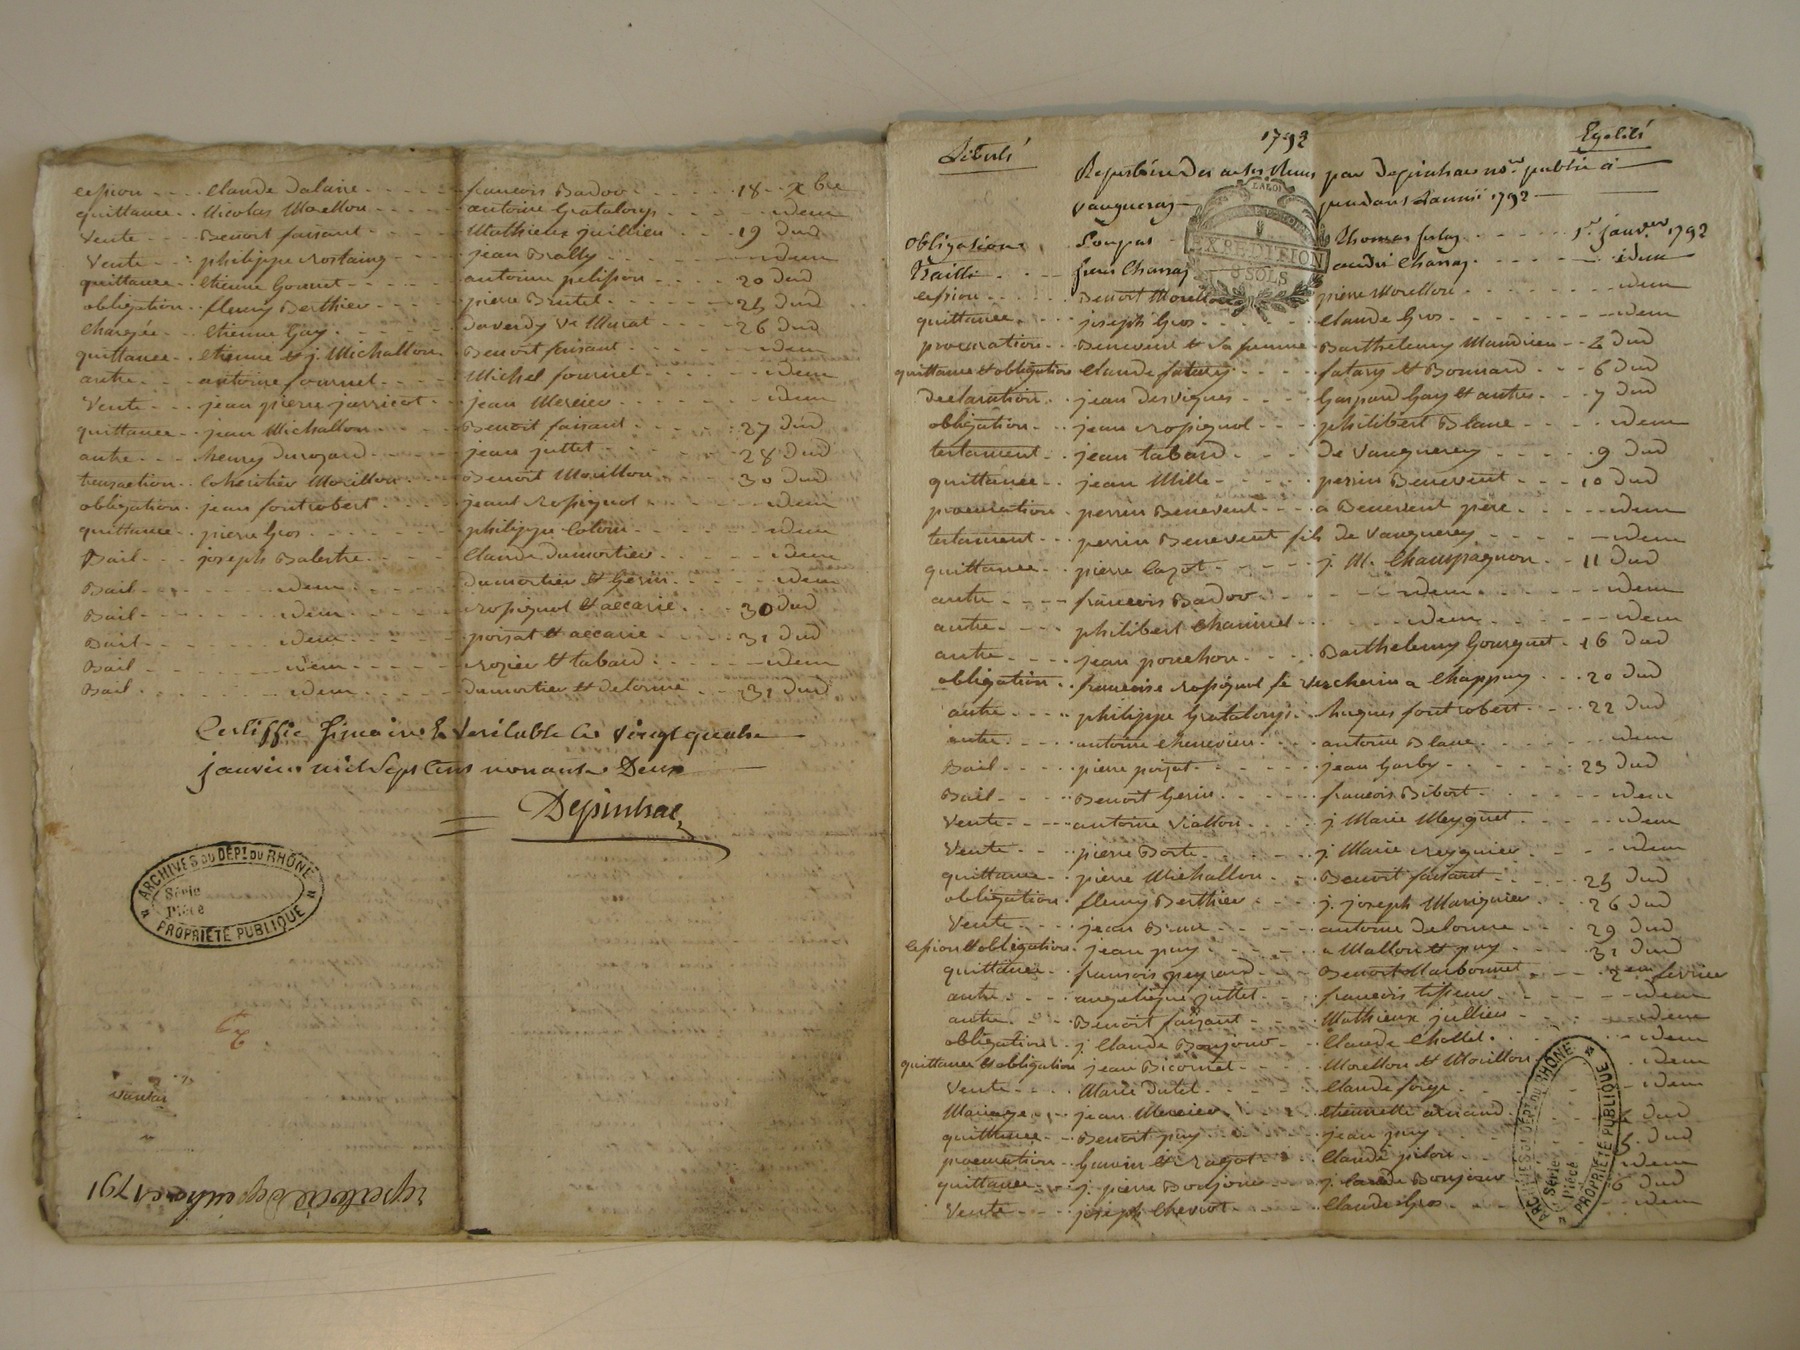 cession Claude Dalaire françois Badov 18 xbre
quittance Nicolas Morellon antoine Grataloup idem
Vente Benoit faisant Mathieux jullien 19 dud
Vente philippe rostaing jean Brally idem
quittance Etienne Gonnet antoine pelisson 20 dud
obligation fleury Berthier pierre Brutel 25 dud
Etienne Gay Ve Murat 26 dud
quittance etienne et j. Michallon Benoit faisant idem
autre antoine fournel Michel fournel idem
Vente jean pierre jarricot jean Mercier idem
quittance jean Michallon Benoit faisant 27 dud
autre henry durozard jean juttet 28 dud
transaction Morillon Benoit Morillon 30 dud
obligation jean fontrobert jeant rospignol idem
quittance pierre Gros philippe Colom idem
Bail joseph Balestre Claude dumortier idem
Bail idem dumortier et Gerin idem
Bail idem rospignol et accarie 30 dud
Bail idem poizat et accarie 31 dud
Bail idem rozier et tabard idem
Bail idem dumortier et delorme 31 dud
Certiffié sincaire & veritable ce vingt quatre
janvier mil sept cens nonante Deux
Depinhac
ARCHIVES DU DÉPT DU RHÔNE
Série
Pièce
PROPRIÉTÉ PUBLIQUE
1791
1792
Liberté Egalité
Repertoire des actes par Depinhac nore public à
Vaugneray pendant L'année 1792
LA LOI
EXPEDITION
8 SOLS
obligation Loupas Thomas 1er janver 1792
Bailli Charras andré Charras idem
cession Benoit Morellon pierre Morellon idem
quittance joseph Gros Claude Gros idem
procuration Benevent et sa femme Barthelemy Mandrien 2 dud
quittance et obligation Claude fatary fatary et Bonnard 6 dud
declaration jean desvignes Gaspard Gay et autres 7 dud
obligation jean rospignol philibert Blanc idem
testament jean tabard de Vaugneray 9 dud
quittance jean Mille perrin Benevent 10 dud
procuration perrin Benevent a Benevent père idem
testament perrin Benevent fils de Vaugneray idem
quittance pierre Cazot j. M. Champagnon 11 dud
autre françois Badov idem idem
autre philibert idem idem
autre jean ponchon Barthelemy Gourguet 16 dud
obligation françoise rospignol fe Vercherin a Chappuy 20 dud
autre philippe Grataloup hugues fontrobert 22 dud
autre antoine chenevier antoine Blanc idem
Bail pierre poizat jean Garby 23 dud
Bail Benoit Gerin francois Bibost idem
Vente antoine Viallon j Marie Meyguet idem
Vente pierre Borte j Marie reygnier idem
quittance pierre Michallon Benoit faisant 25 dud
obligation fleury Berthier j. joseph Marignier 26 dud
Vente jean antoine delorme 29 dud
cession et obligation jean puy a Mallon et puy 31 dud
quittance françois peyrard Benoit Narbonnet 2 fevrier
autre angelique juttet francois tisseur idem
autre Benoit faisant Mathieux jullien idem
obligation j. Claude Bonjour Claude Chollet idem
quittance et obligation jean Bicornet Morellon et Morillon idem
Vente Marie dutel Claude forge idem
Mariage jean Mercier etiennette arnaud dud
quittance Benoit puy jean puy 5 dud
procuration Guerin et ragot Claude pilon idem
quittance j. pierre Bonjour j. Claude Bonjour 6 dud
Vente joseph Cherviot Claude Gros idem
ARCHIVES DU DÉPT DU RHÔNE
Série
Pièce
PROPRIÉTÉ PUBLIQUE